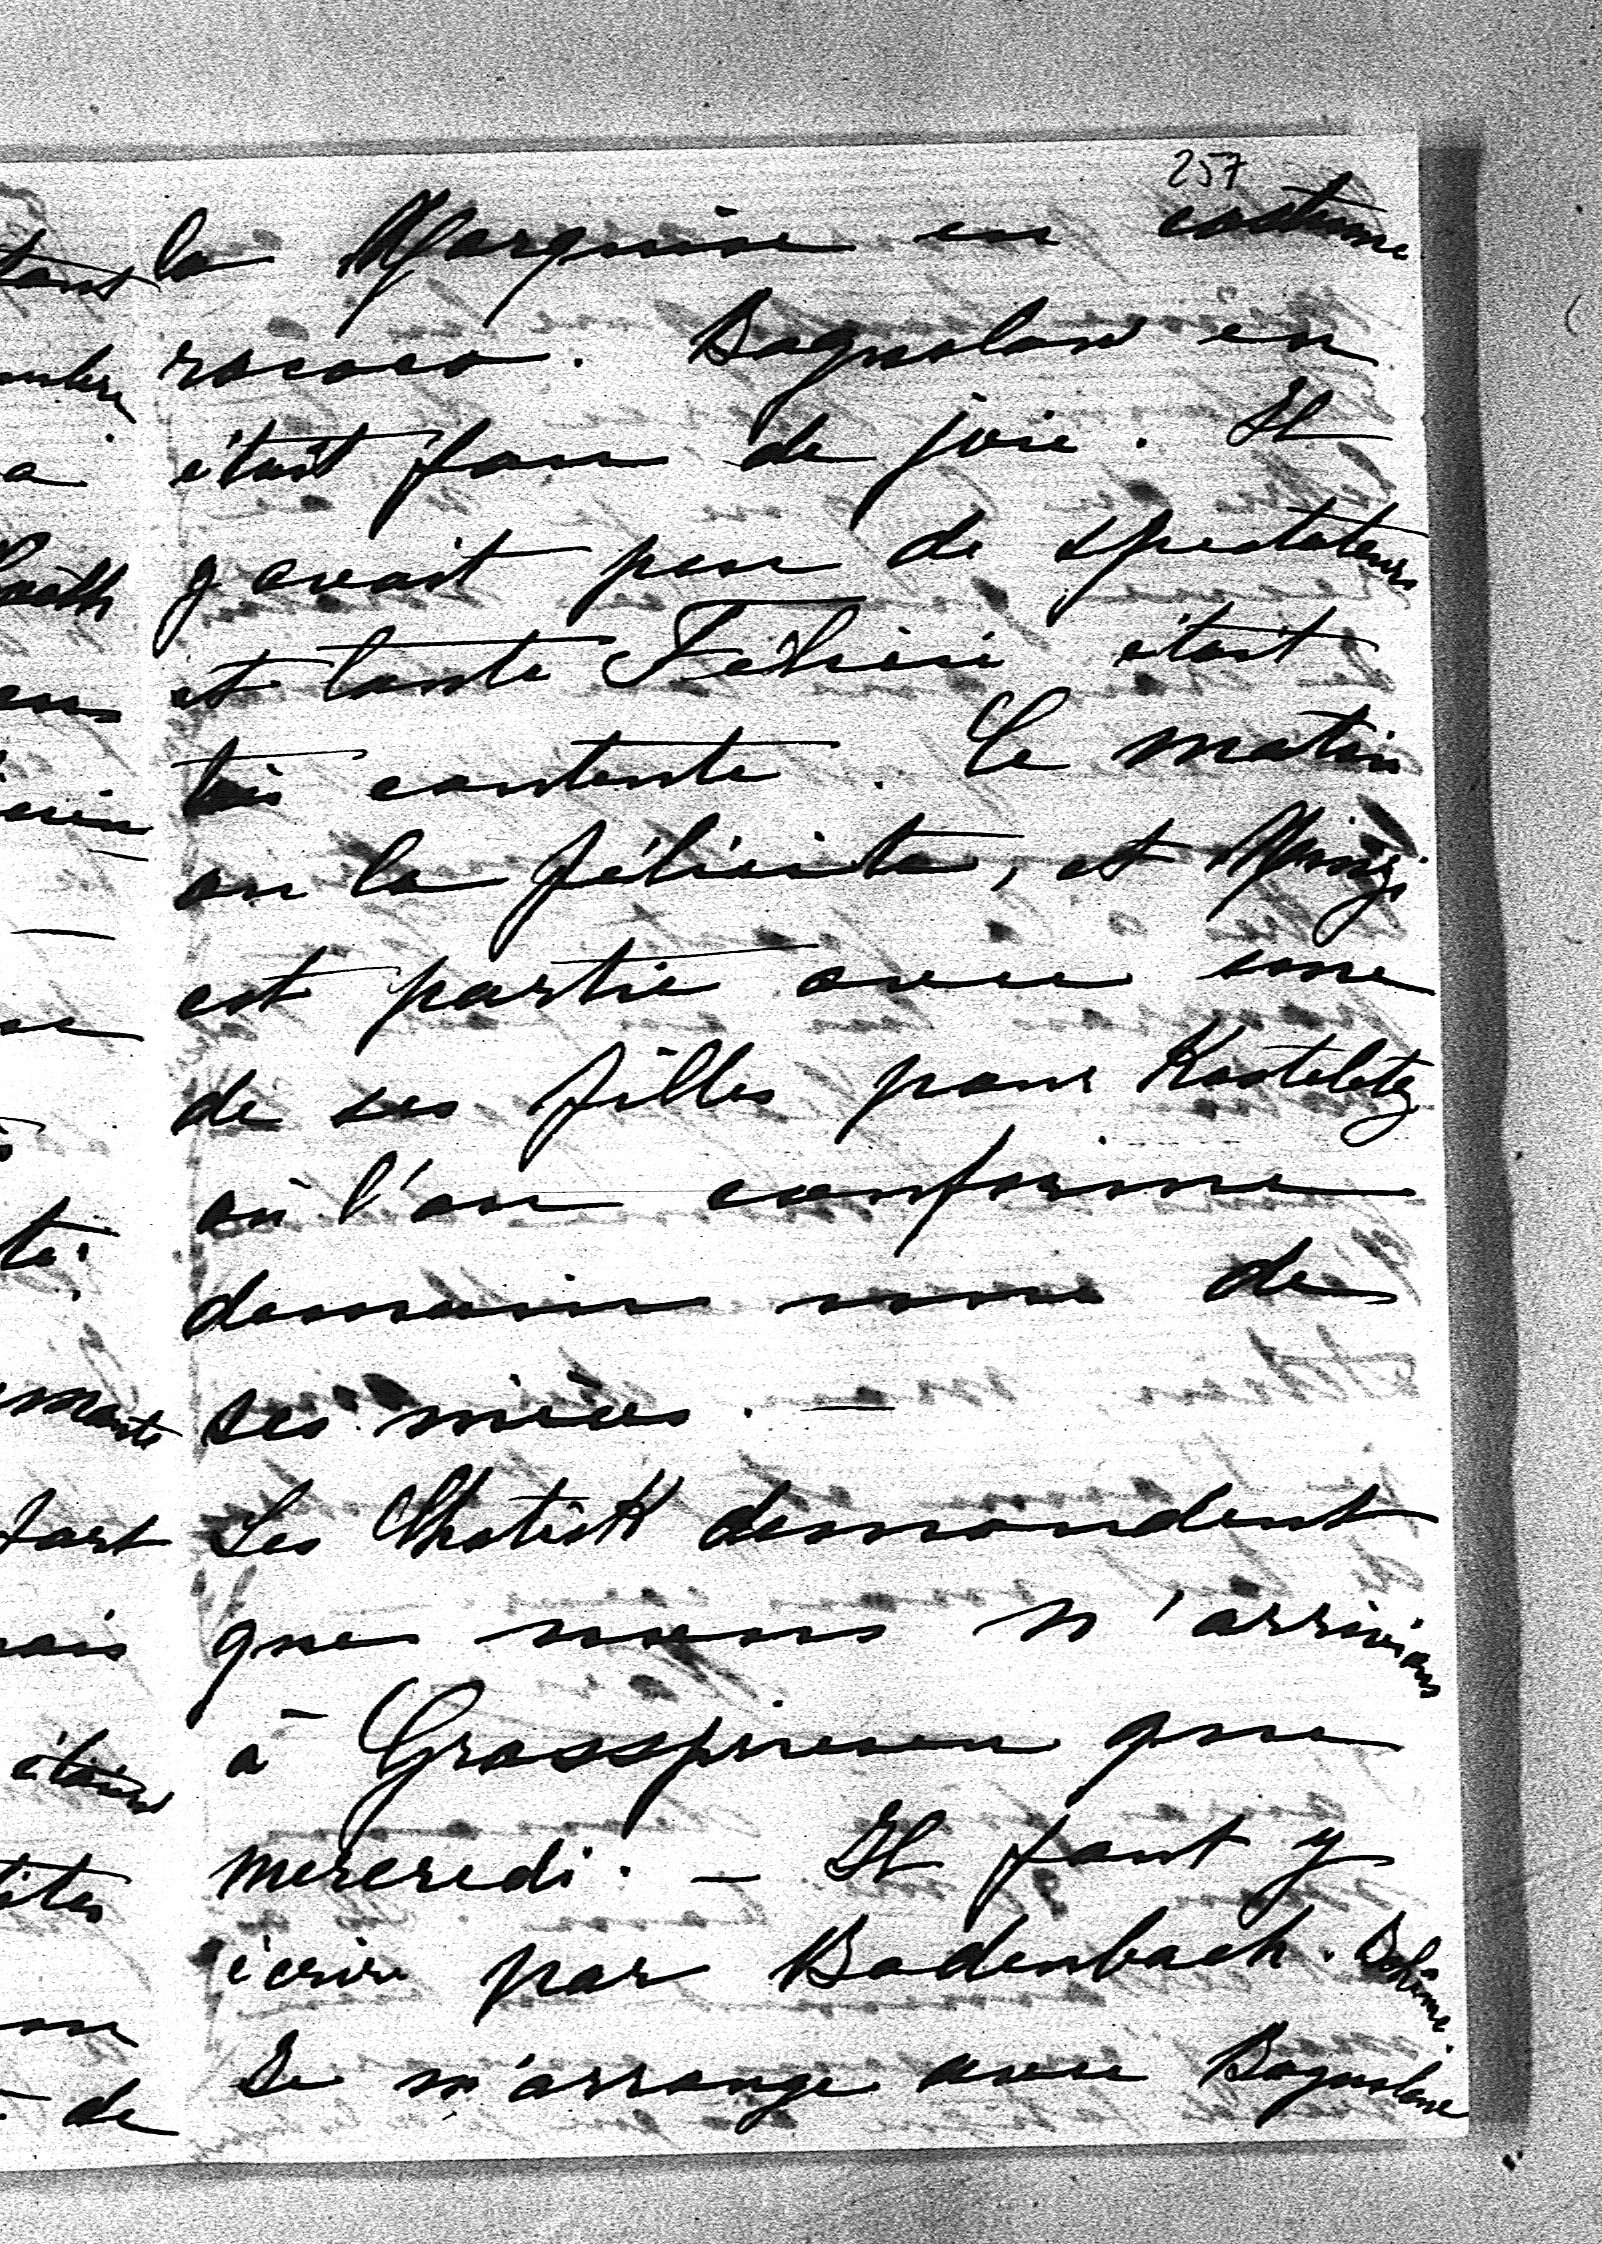 257
la Marquise en costume
rococo. Boguslaw en
était fou de joie. Il
y avait peu de spectateurs
et tante Félicie était
très contente. Le matin
on la félicita, et Minzi
est partie avec une
de ses filles pour Kosteletz
où l'on confirme
demain une de
ses nièces. —
Les Chotek demandent
que nous n'arrivions
à Grosspriesen que
mercredi. — Il faut y
écrire par Bodenbach. Bohême.
Je m'arrange avec Boguslaw